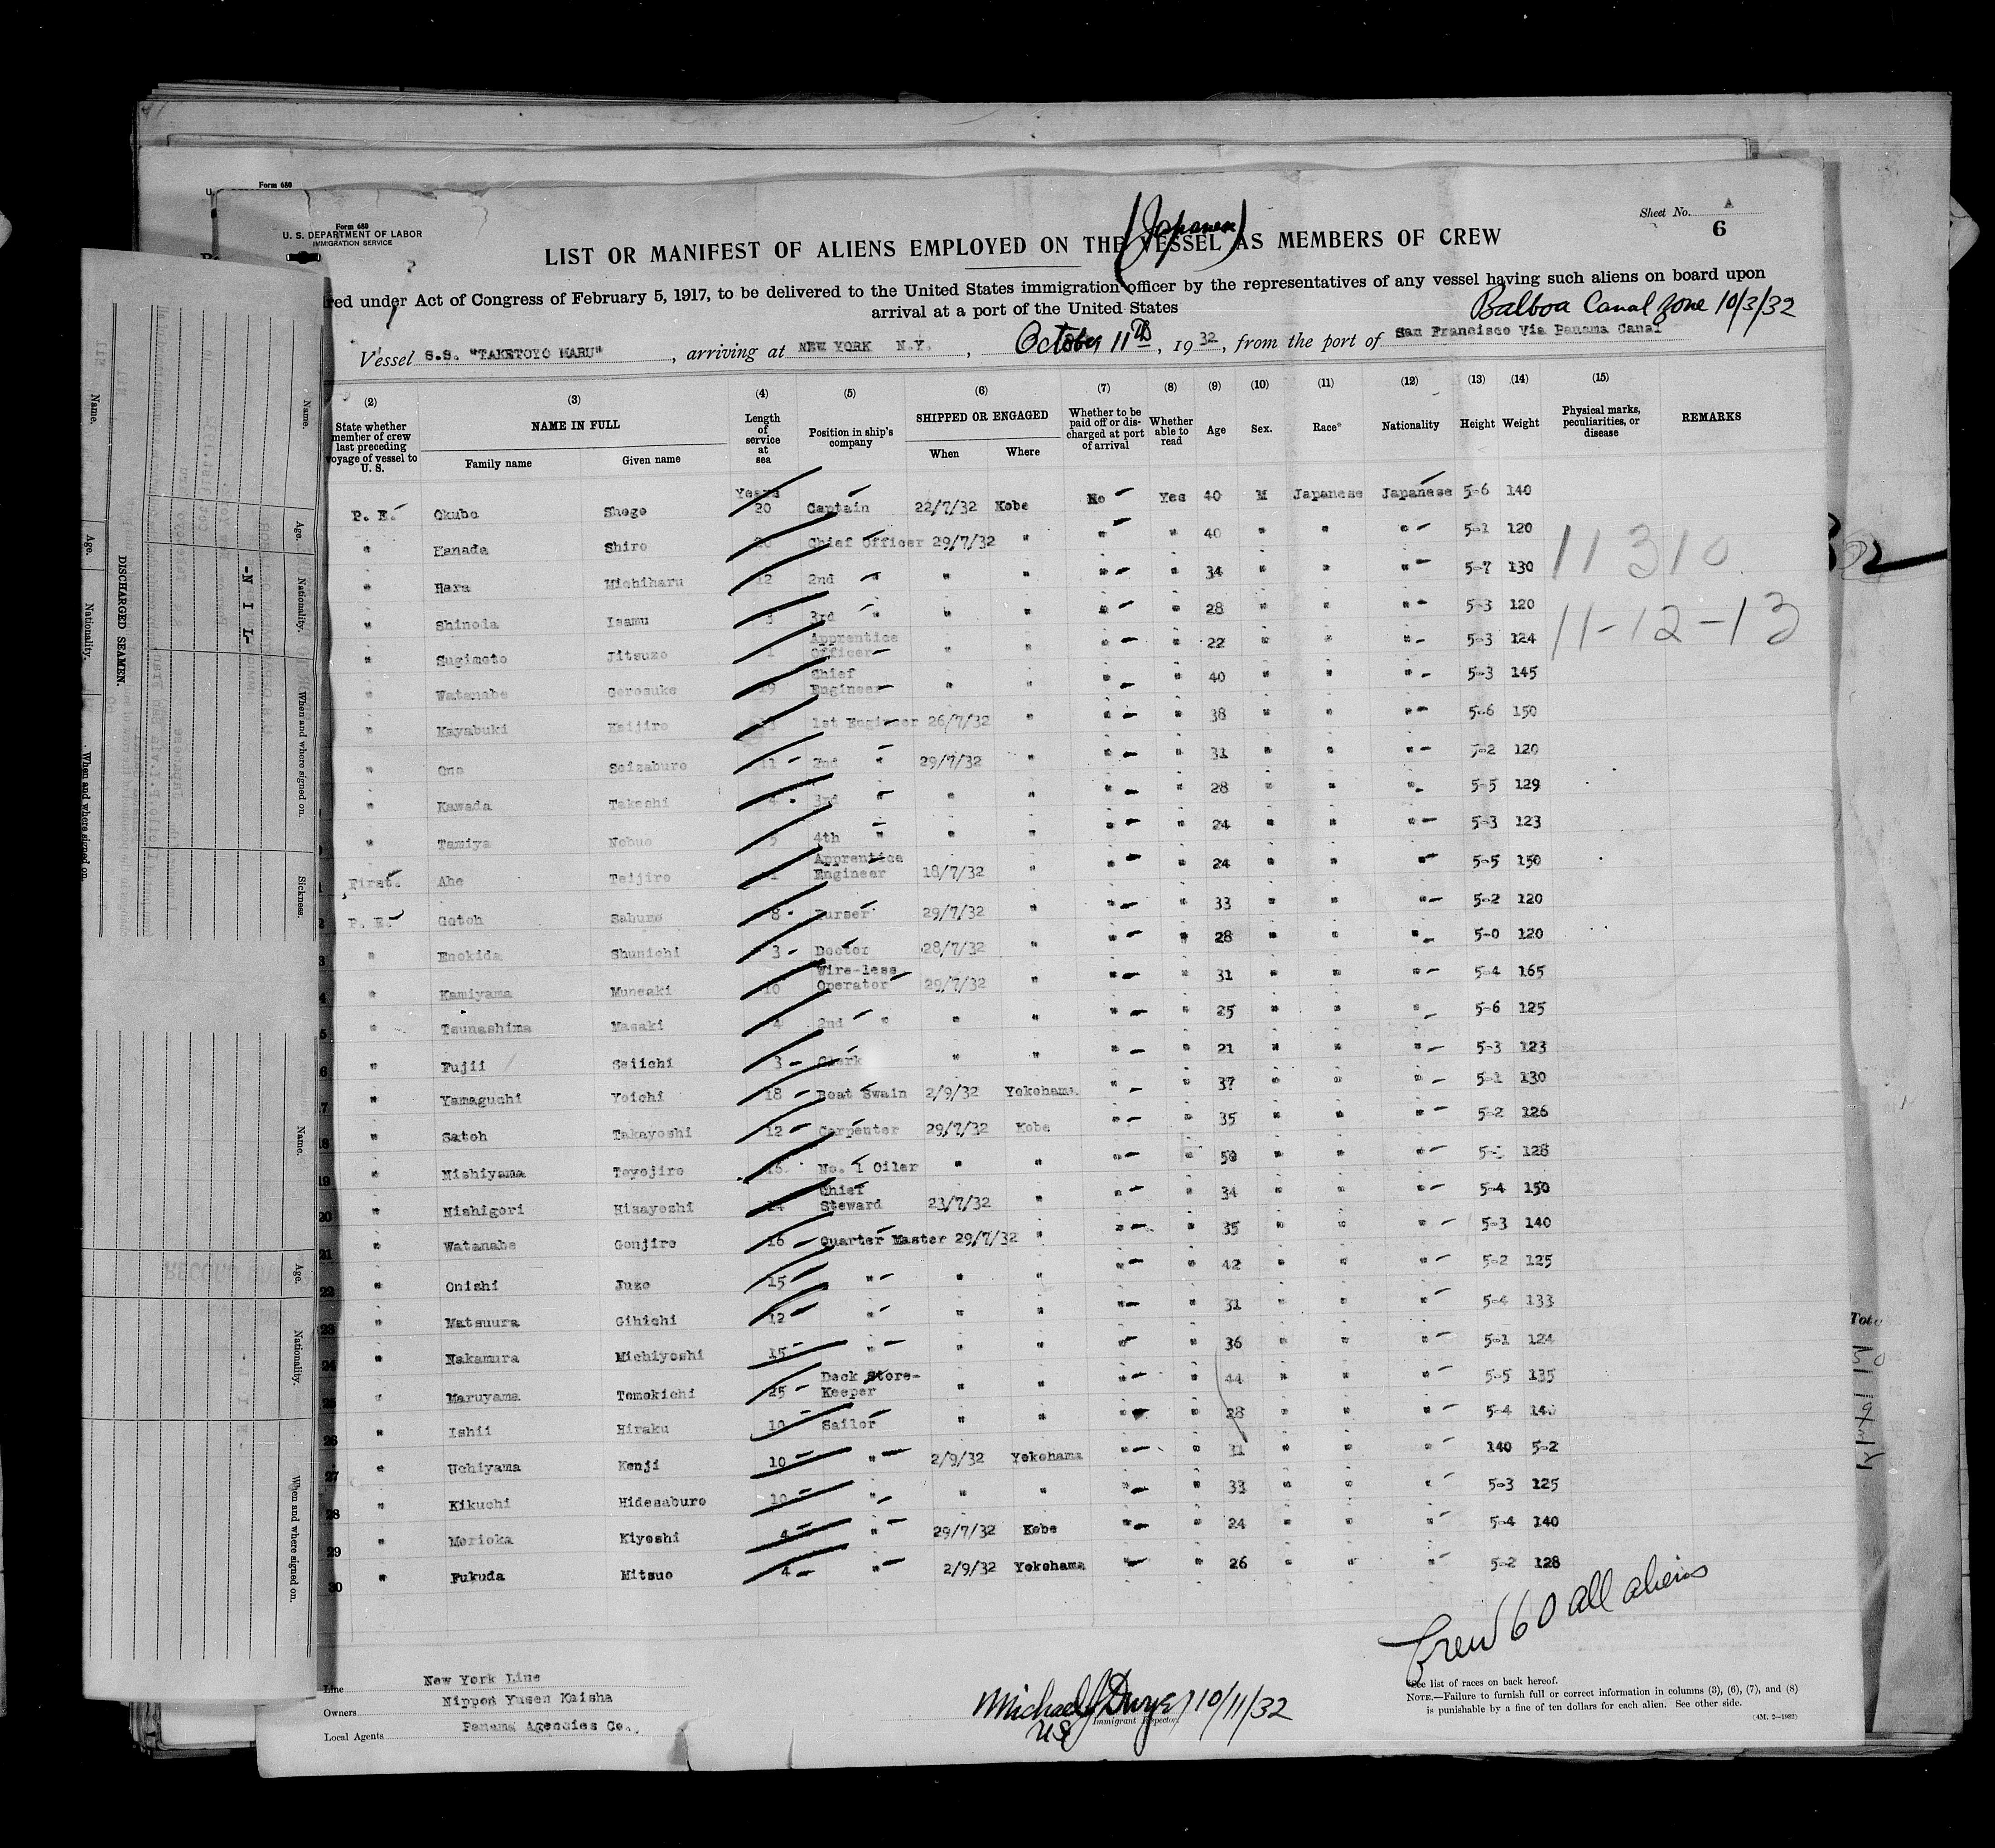 Form 680
Form 680
U. S. DEPARTMENT OF LABOR
IMMIGRATION SERVICE
Sheet No. A
6
(Japanese)
LIST OR MANIFEST OF ALIENS EMPLOYED ON THE VESSEL AS MEMBERS OF CREW
red under Act of Congress of February 5, 1917, to be delivered to the United States immigration officer by the representatives of any vessel having such aliens on board upon
arrival at a port of the United States
Balboa Canal Zone 10/3/32
Vessel S.S. "TAKETOYO MARU", arriving at NEW YORK N.Y., October 11th, 1932, from the port of San Francisco Via Panama Canal
(2) (3) (4) (5) (6) (7) (8) (9) (10) (11) (12) (13) (14) (15)
State whether member of crew last preceding voyage of vessel to U. S. NAME IN FULL Family name Given name Length of service at sea Position in ship's company SHIPPED OR ENGAGED When Where Whether to be paid off or discharged at port of arrival Whether able to read Age Sex. Race* Nationality Height Weight Physical marks, peculiarities, or disease REMARKS
P. E. Okubo Shogo Years 20 Captain 22/7/32 Kobe No Yes 40 M Japanese Japanese 5-6 140
" Kanada Shiro 20 Chief Officer 29/7/32 " " " 40 " " " 5-1 120
" Hara Michiharu 12 2nd " " " " " 34 " " " 5-7 130
" Shinoda Isamu 3 3rd " " " " " 28 " " " 5-3 120
" Sugimoto Jitsuzo 1 Apprentice Officer " " " " 22 " " " 5-3 124
" Watanabe Gorosuke 19 Chief Engineer " " " " 40 " " " 5-3 145
" Kayabuki Keijiro 1st Engineer 26/7/32 " " " 38 " " " 5-6 150
" Ono Seizaburo 11 2nd " 29/7/32 " " " 31 " " " 5-2 120
" Kawada Takeshi 4 3rd " " " " " 28 " " " 5-5 129
" Tamiya Nobuo 5 4th " " " " " 24 " " " 5-3 123
First. Abe Teijiro 1 Apprentice Engineer 18/7/32 " " " 24 " " " 5-5 150
P. E. Gotoh Saburo 8 Purser 29/7/32 " " " 33 " " " 5-2 120
" Enokida Shunichi 3 Doctor 28/7/32 " " " 28 " " " 5-0 120
" Kamiyama Muneaki 10 Wire-less Operator 29/7/32 " " " 31 " " " 5-4 165
" Tsunashima Masaki 4 2nd " " " " " 25 " " " 5-6 125
" Fujii Seiichi 3 Clerk " " " " 21 " " " 5-3 123
" Yamaguchi Yoichi 18 Boat Swain 2/9/32 Yokohama " " 37 " " " 5-1 130
" Satoh Takayoshi 12 Carpenter 29/7/32 Kobe " " 35 " " " 5-2 126
" Nishiyama Toyojiro 16 No. 1 Oiler " " " " 50 " " " 128
" Nishigori Hisayoshi 14 Chief Steward 23/7/32 " " " 34 " " " 5-4 150
" Watanabe Gonjiro 16 Quarter Master 29/7/32 " " " 35 " " " 5-3 140
" Onishi Juzo 15 " " " " " 42 " " " 5-2 125
" Matsuura Gihichi 12 " " " " " 31 " " " 5-4 133
" Nakamura Michiyoshi 15 " " " " " 36 " " " 5-1 124
" Maruyama Tomokichi 25 Deck Store-Keeper " " " " 44 " " " 5-5 135
" Ishii Hiraku 10 Sailor " " " " 28 " " " 5-4 140
" Uchiyama Kenji 10 " 2/9/32 Yokohama " " 31 " " " 140 5-2
" Kikuchi Hidesaburo 10 " " " " " 33 " " " 5-3 125
" Morioka Kiyoshi 4 " 29/7/32 Kobe " " 24 " " " 5-4 140
30 " Fukuda Mitsuo 4 " 2/9/32 Yokohama " " 26 " " " 5-2 128
11310
11-12-13
Crew 60 all aliens
Line New York Line
Owners Nippon Yusen Kaisha
Local Agents Panama Agencies Co.,
Michael J Dwyer 10/11/32
US Immigrant Inspector.
*See list of races on back hereof.
NOTE.—Failure to furnish full or correct information in columns (3), (6), (7), and (8)
is punishable by a fine of ten dollars for each alien. See other side.
DISCHARGED SEAMEN.
Name. Age. Nationality. When and where signed on.
Name. Age. Nationality. When and where signed on. Sickness.
-N I L-
Name. Age. Nationality. When and where signed on.